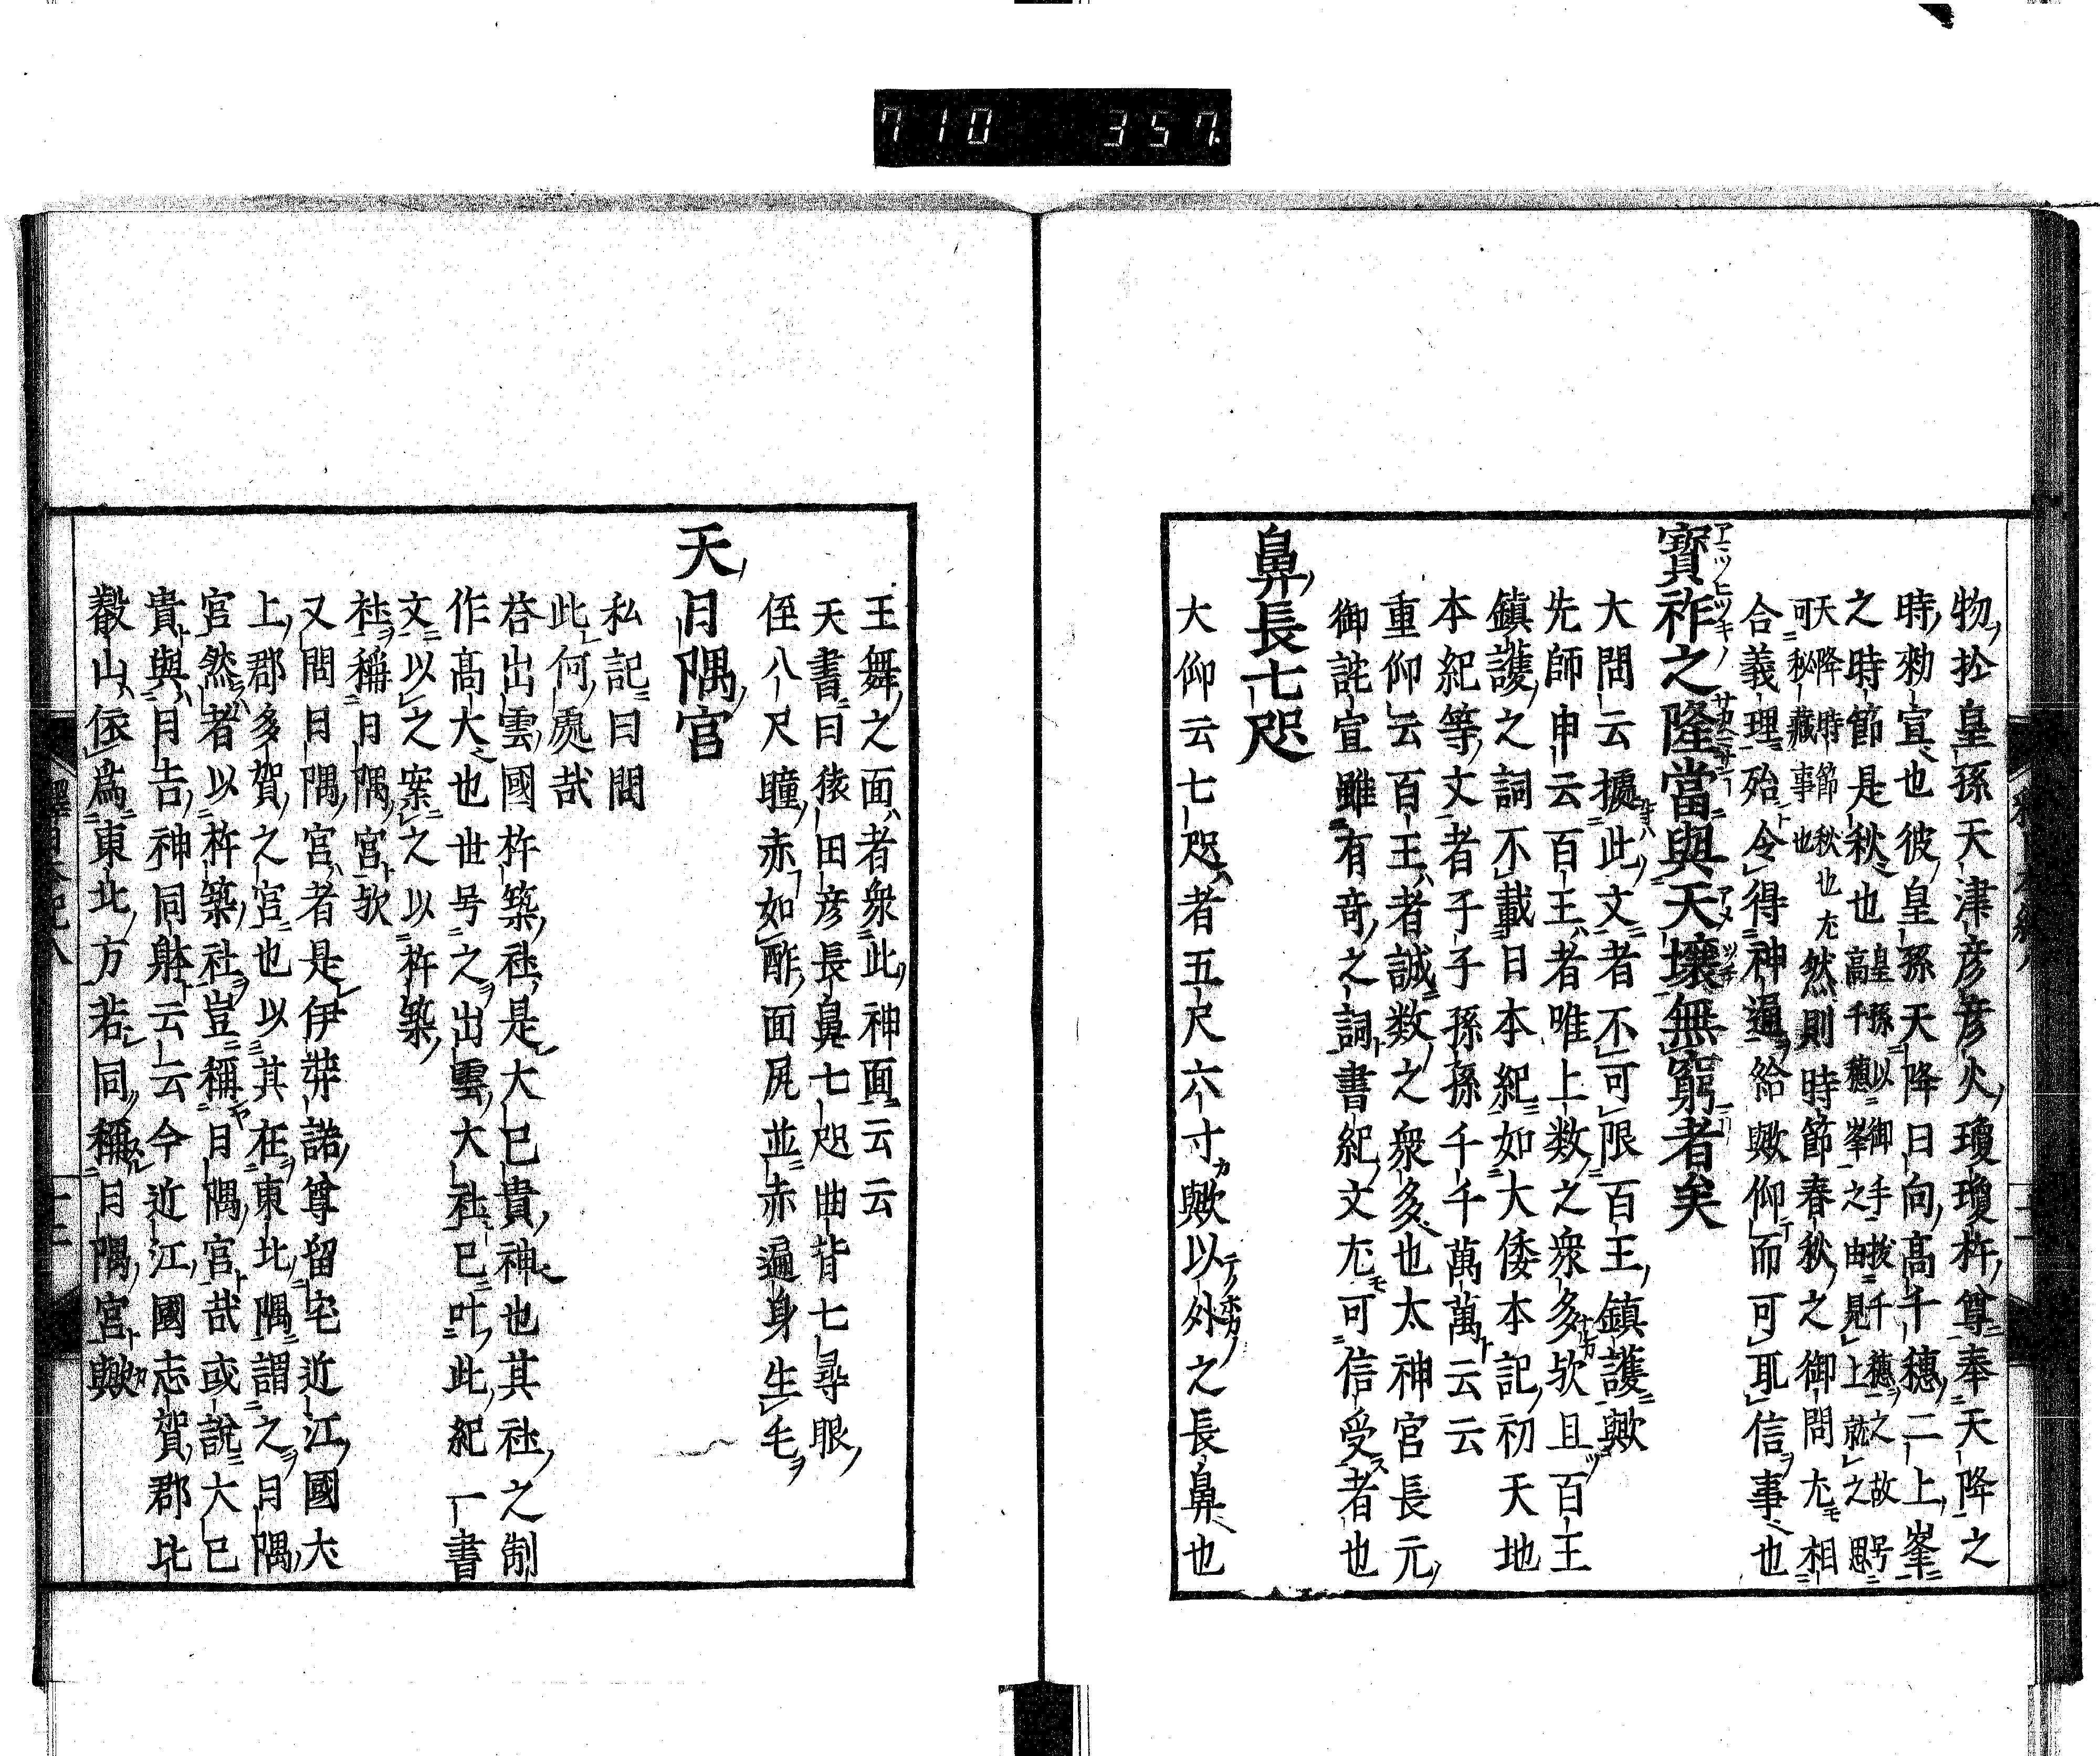 710 357
物於皇孫天津彦彦火瓊瓊杵尊奉天降之
時勅宣也彼皇孫天降日向高千穂二上峯
之時節是秋也皇孫以御手抜千穂之故号高千穂峯之由見上就之思
天降時節秋也尤可秘藏事也然則時節春秋之御問尤相
合義理殆令得神通給歟仰而可取信事也
寳祚之隆當與天壤無窮者矣
大問云據此文者不可限百王鎮護歟
先師申云百王者唯上数之衆多欤且百王
鎮護之詞不載日本紀如大倭本記初天地
本紀等文者子子孫孫千千萬萬云云
重仰云百王者誠数之衆多也太神宮長元
御託宣雖有竒之詞書紀文尤可信受者也
鼻長七咫
大仰云七咫者五尺六寸歟以外之長鼻也
王舞之面者衆此神面云云
天書曰猿田彦長鼻七咫曲背七尋眼
侄八尺瞳赤如酢面尻並赤遍身生毛
天日隅宮
私記曰問
此何處哉
荅出雲國杵築社是大己貴神也其社之制
作高大也世号之出雲大社已叶此紀一書
文以之案之以杵築
社稱日隅宮欤
又問日隅宮者是伊弉諾尊留宅近江國犬
上郡多賀之宮也以其在東北隅謂之日隅
宮然者以杵築社豈稱日隅宮哉或說大己
貴與月吉神同躰云云今近江國志賀郡比
叡山依爲東北方若同稱日隅宮歟